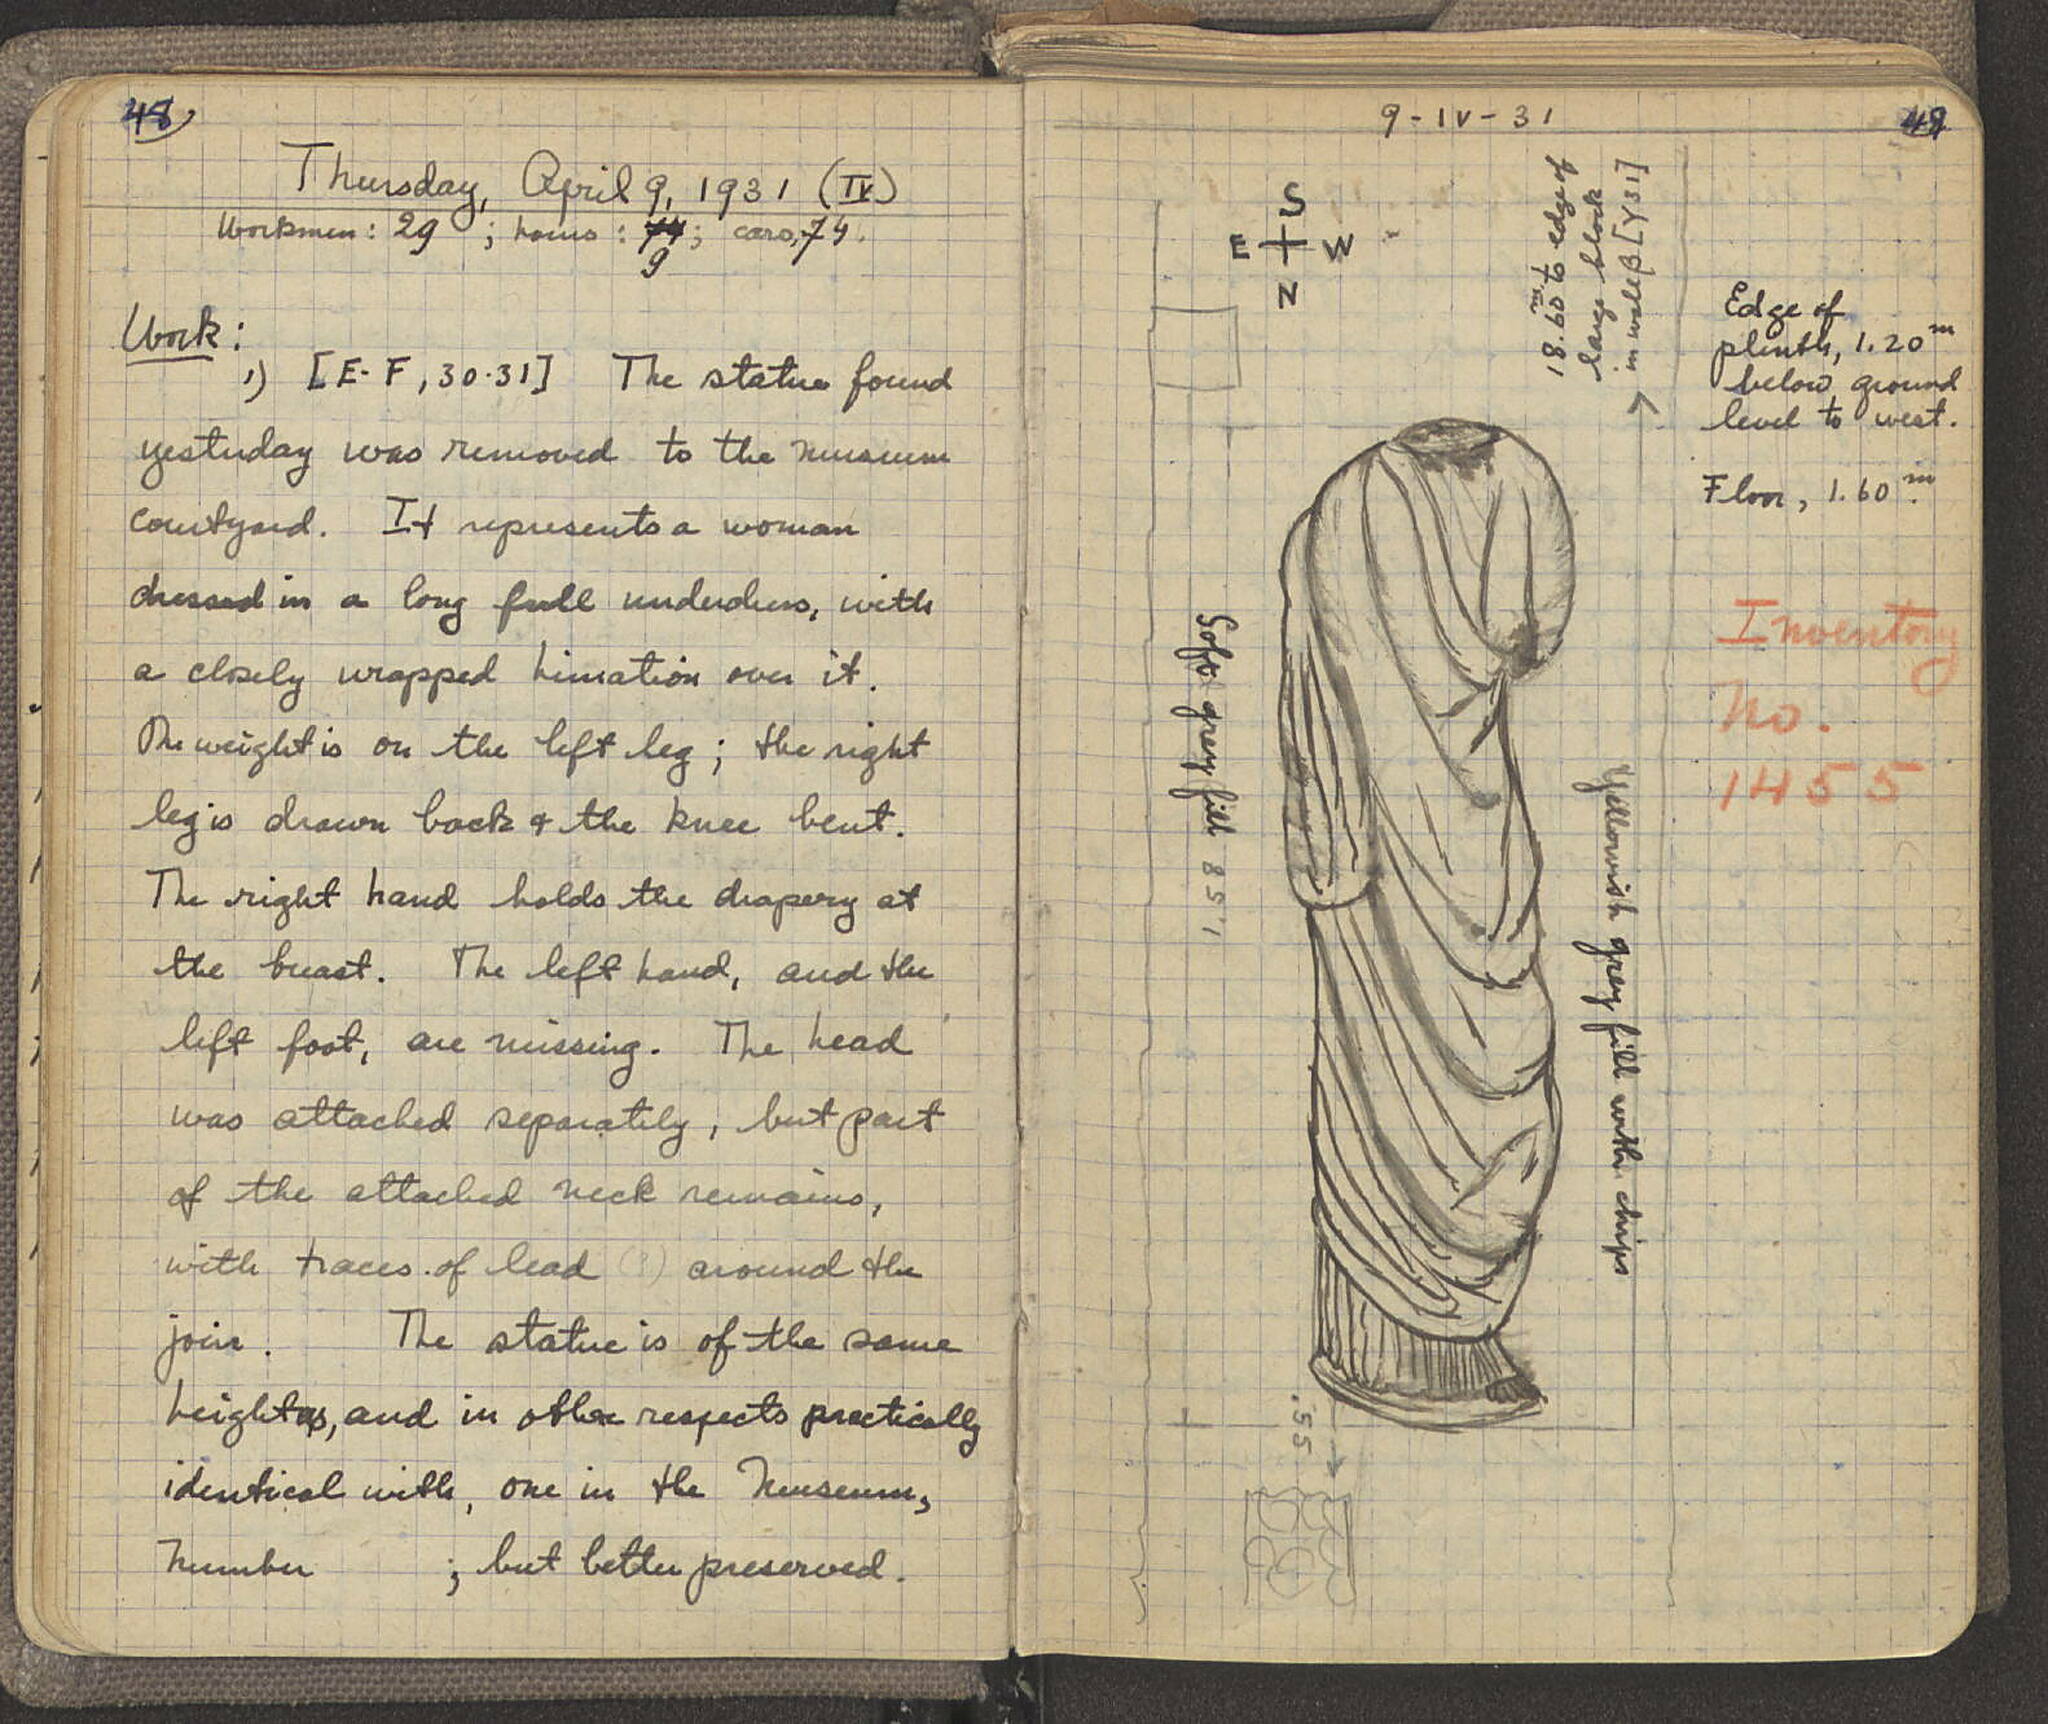 48
Thursday, April 9, 1931 (IV)
Workmen: 29 ; hours : 74; cars, 74.
9
Work:
1) [E-F, 30-31] The statue found
yesterday was removed to the museum
courtyard. It represents a woman
dressed in a long full underdress, with
a closely wrapped himation over it.
The weight is on the left leg; the right
leg is drawn back & the knee bent.
The right hand holds the drapery at
the breast. The left hand, and the
left foot, are missing. The head
was attached separately, but part
of the attached neck remains,
with traces of lead (?) around the
join. The statue is of the same
height as, and in other respects practically
identical with, one in the Museum,
Number ; but better preserved.
9-IV-31
49
S
E W
N
18.60m to edge of
large block
in wall β [Y31]
Edge of
plinth, 1.20m
below ground
level to west.
Floor, 1.60m.
Inventory
No.
1455
Soft grey fill
1.58
Yellowish grey fill with chips
.55